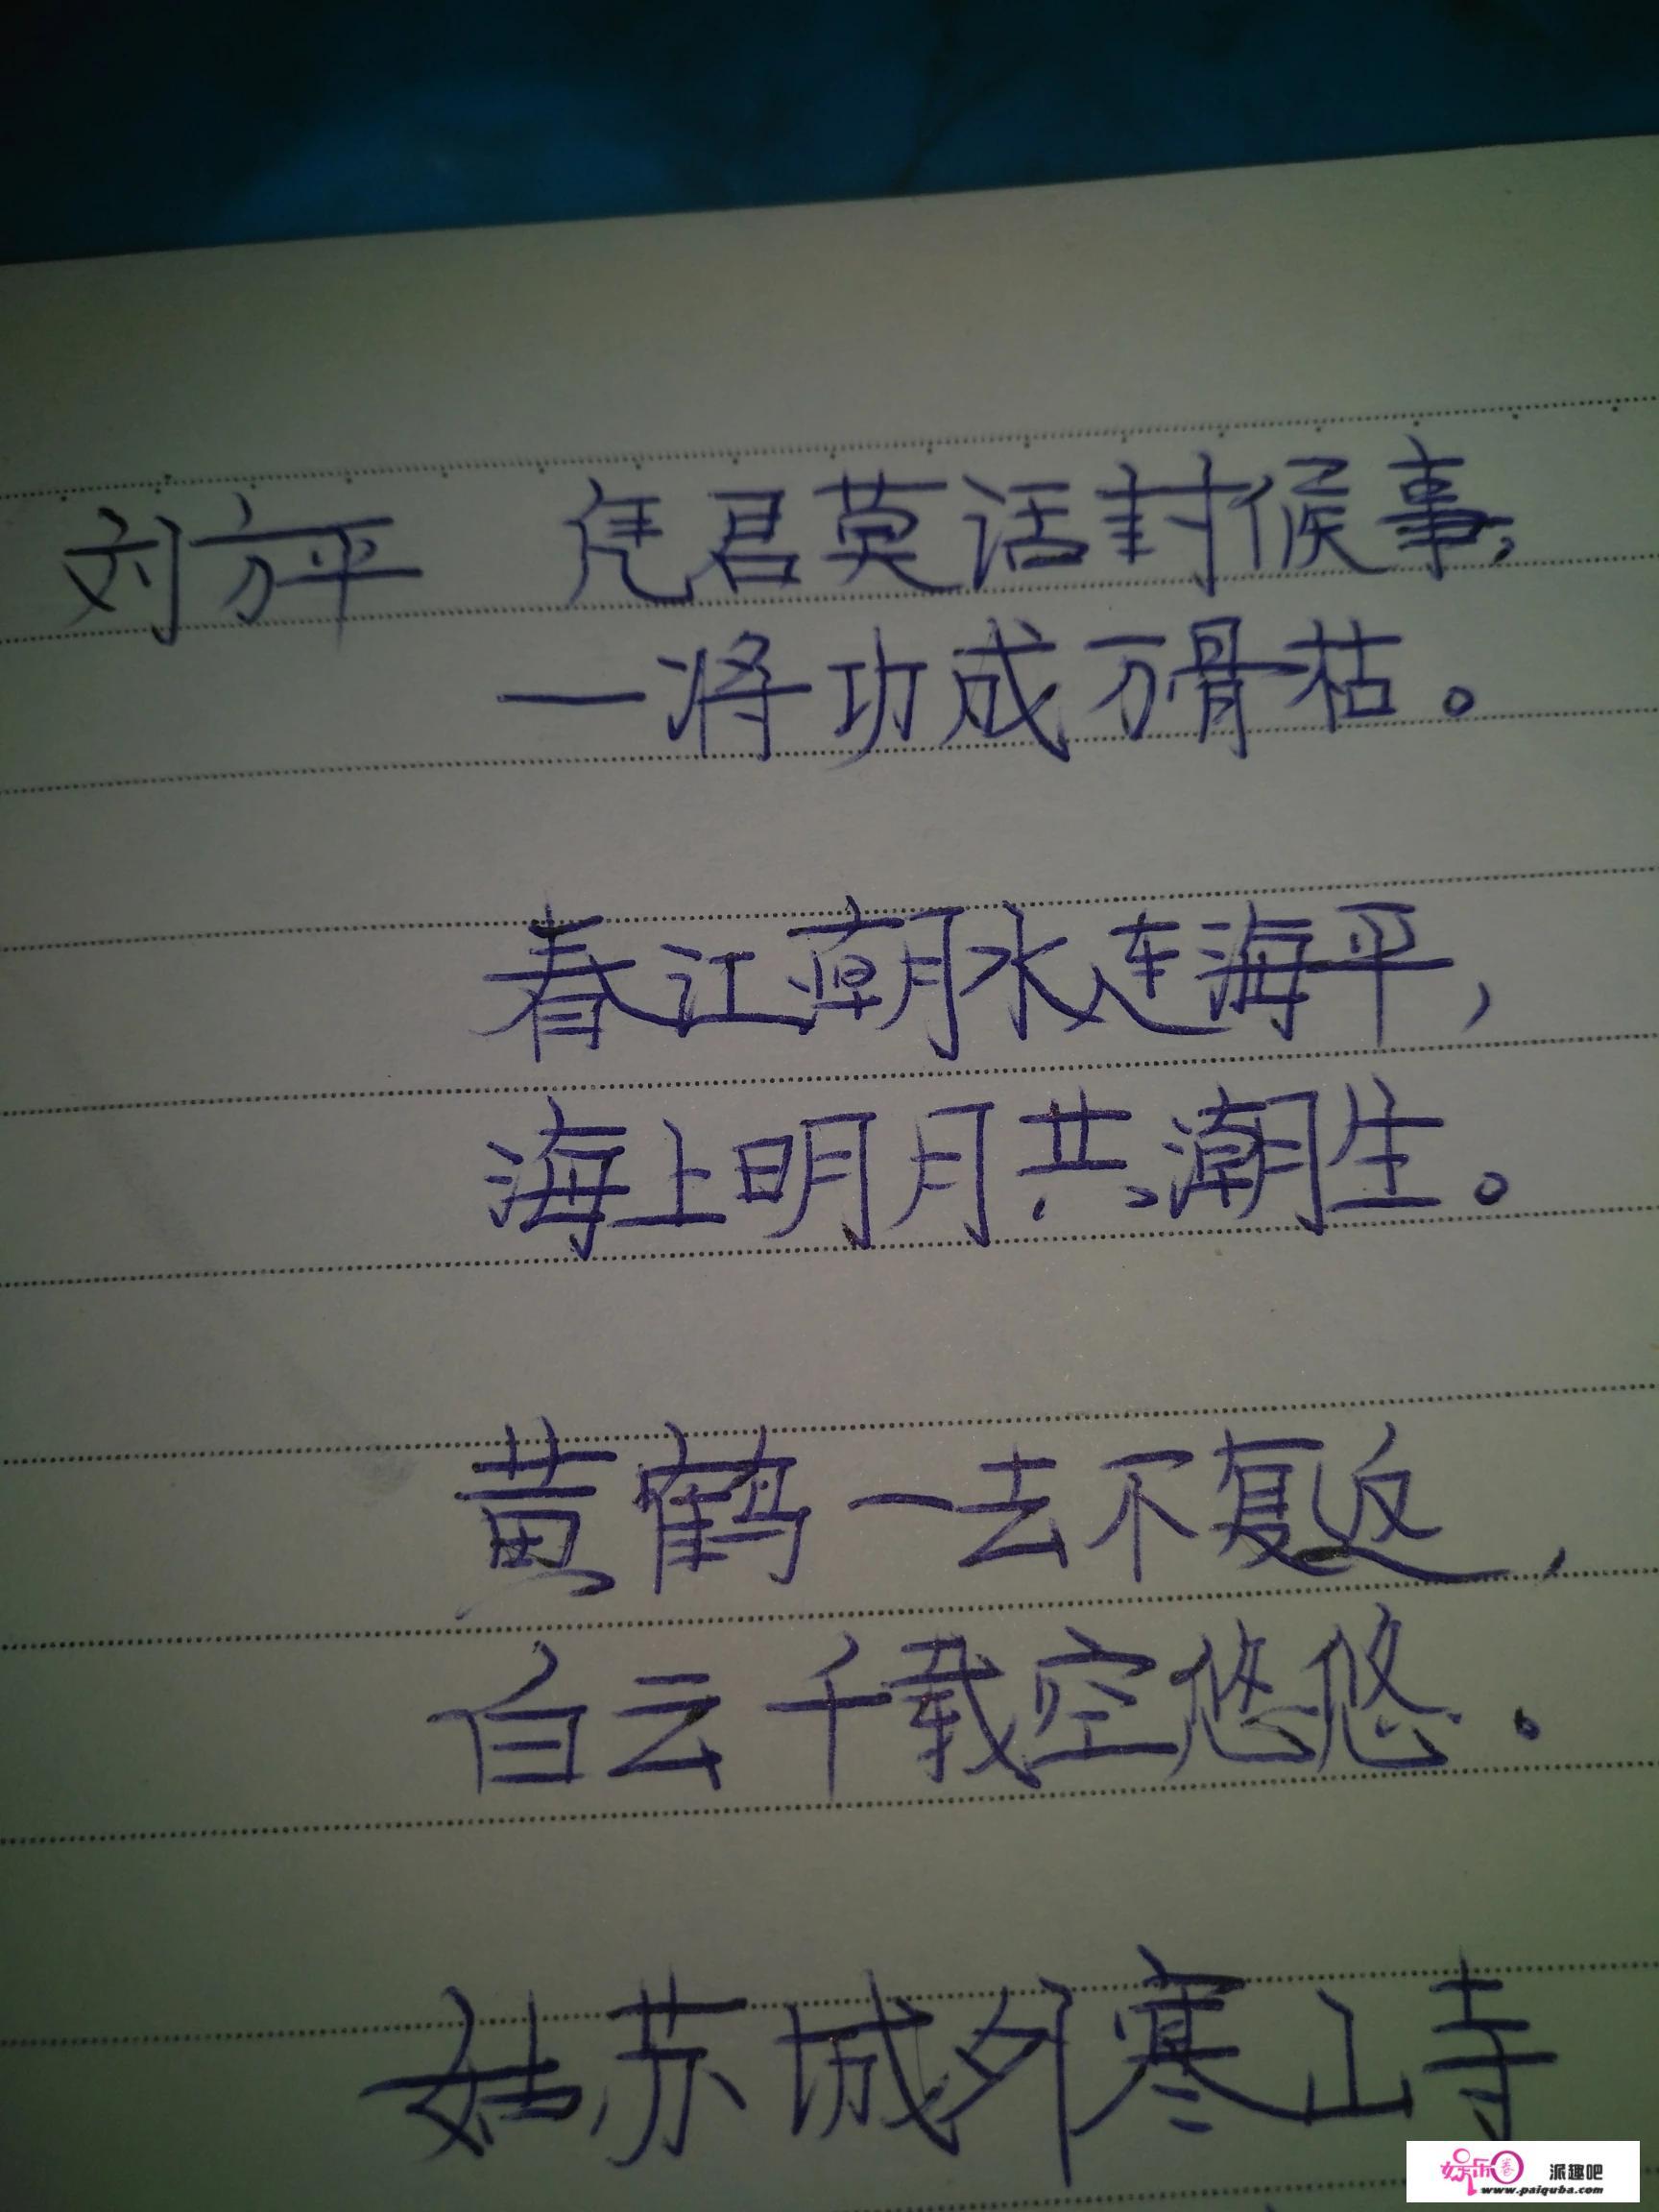 刘方平 凭君莫话封候事,
一将功成万骨枯。
春江潮水连海平,
海上明月共潮生。
黄鹤一去不复返,
白云千载空悠悠。
姑苏城外寒山寺
娱乐圈 派趣吧
www.paiquba.com